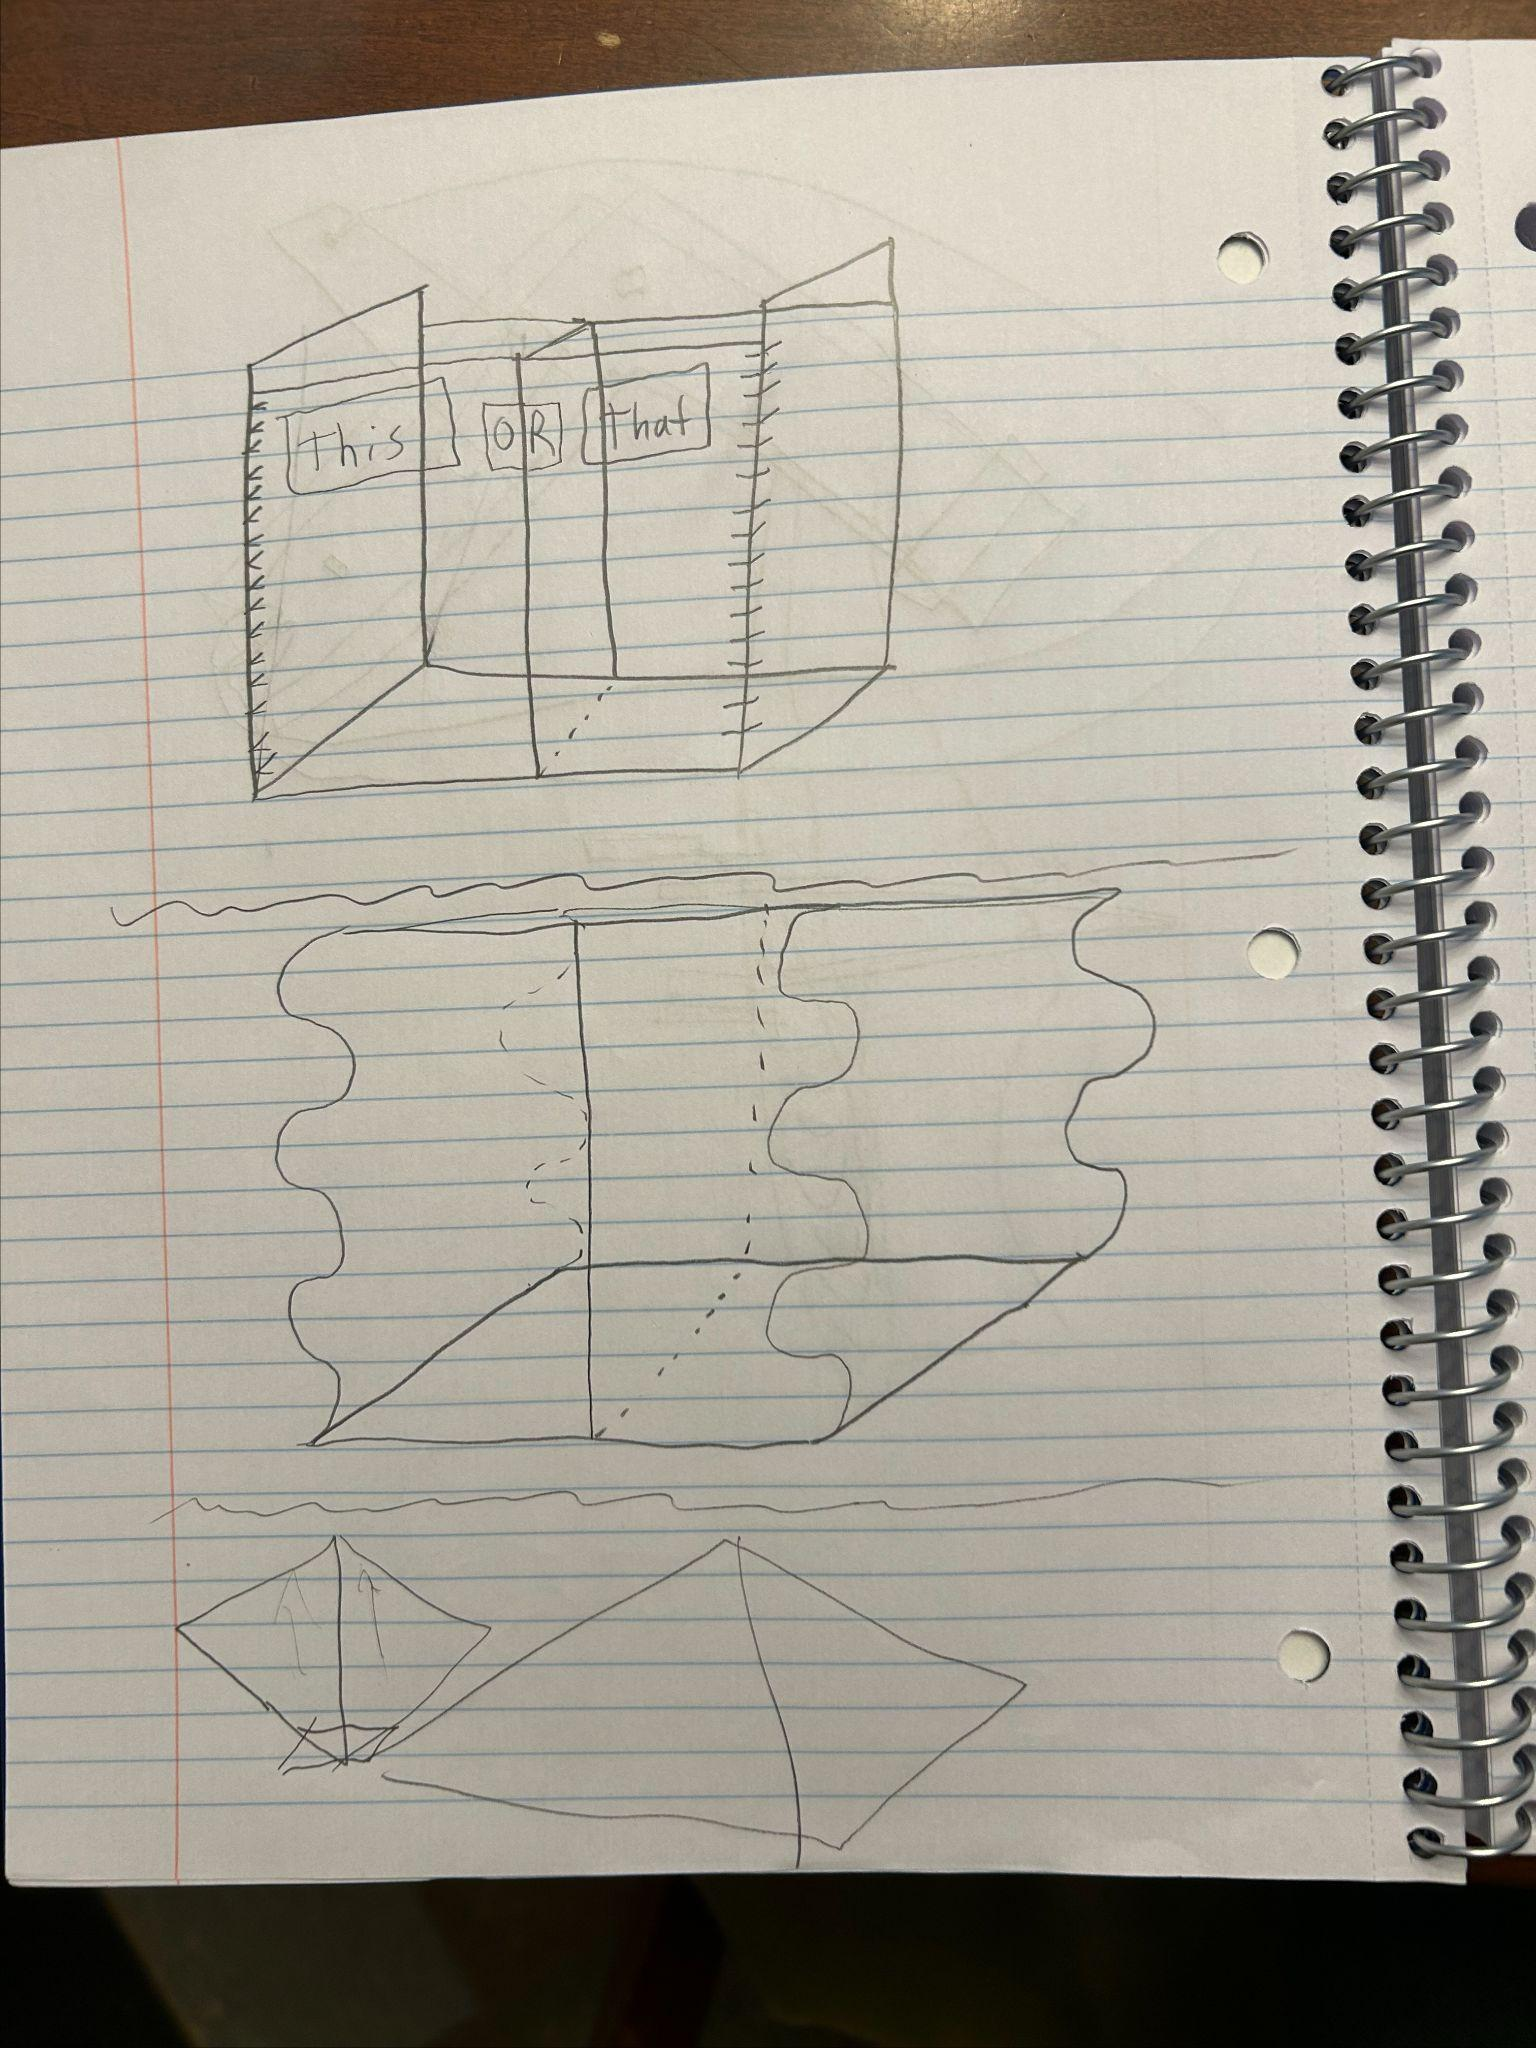 This OR That